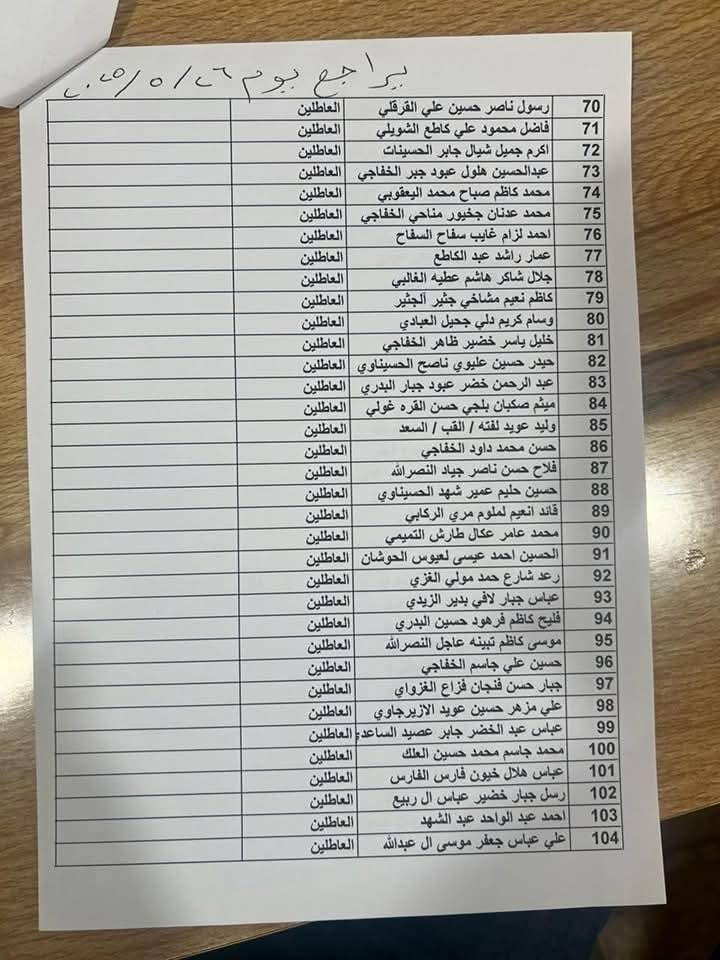 يراجع يوم ٢٦ / ٥ / ٢٠٢٥
70 رسول ناصر حسين علي القرقلي العاطلين
71 فاضل محمود علي كاطع الشويلي العاطلين
72 اكرم جميل شيال جابر الحسينات العاطلين
73 عبدالحسين هلول عبود جبر الخفاجي العاطلين
74 محمد كاظم صباح محمد اليعقوبي العاطلين
75 محمد عدنان جخيور مناحي الخفاجي العاطلين
76 احمد لزام غايب سفاح السفاح العاطلين
77 عمار راشد عبد الكاطع العاطلين
78 جلال شاكر هاشم عطيه الغالبي العاطلين
79 كاظم نعيم مشاخي جثير الجثير العاطلين
80 وسام كريم دلي جحيل العبادي العاطلين
81 خليل ياسر خضير ظاهر الخفاجي العاطلين
82 حيدر حسين عليوي ناصح الحسيناوي العاطلين
83 عبد الرحمن خضر عبود جبار البدري العاطلين
84 ميثم صكبان بلجي حسن القره غولي العاطلين
85 وليد عويد لفته / القب / السعد العاطلين
86 حسن محمد داود الخفاجي العاطلين
87 فلاح حسن ناصر جياد النصرالله العاطلين
88 حسين حليم عمير شهد الحسيناوي العاطلين
89 قائد انعيم لملوم مري الركابي العاطلين
90 محمد عامر عكال طارش التميمي العاطلين
91 الحسين احمد عيسى لعيوس الحوشان العاطلين
92 رعد شارع حمد مولي الغزي العاطلين
93 عباس جبار لافي بدير الزيدي العاطلين
94 فليح كاظم فرهود حسين البدري العاطلين
95 موسى كاظم تبينه عاجل النصرالله العاطلين
96 حسين علي جاسم الخفاجي العاطلين
97 جبار حسن فنجان فزاع الغزواي العاطلين
98 علي مزهر حسين عويد الازيرجاوي العاطلين
99 عباس عبد الخضر جابر عصيد الساعدي العاطلين
100 محمد جاسم محمد حسين العلك العاطلين
101 عباس هلال خيون فارس الفارس العاطلين
102 رسل جبار خضير عباس ال ربيع العاطلين
103 احمد عبد الواحد عبد الشهد العاطلين
104 علي عباس جعفر موسى ال عبدالله العاطلين